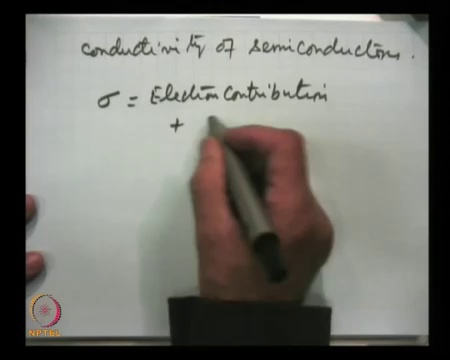 conductivity of semiconductors.
σ = Electron contribution
+
NPTEL